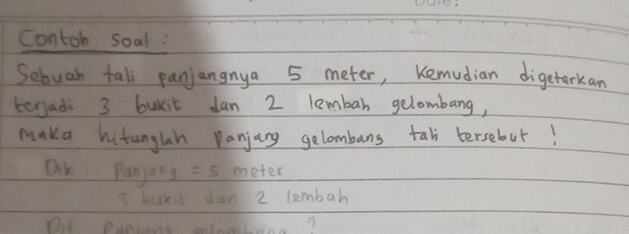 Date:
Contoh soal:
Sebuah tali panjangnya 5 meter, kemudian digetarkan
terjadi 3 bukit dan 2 lembah gelombang,
maka hitunglah panjang gelombang tali tersebut!
Dik. Panjang = 5 meter
3 bukit dan 2 lembah
Dit Panjang gelombang?